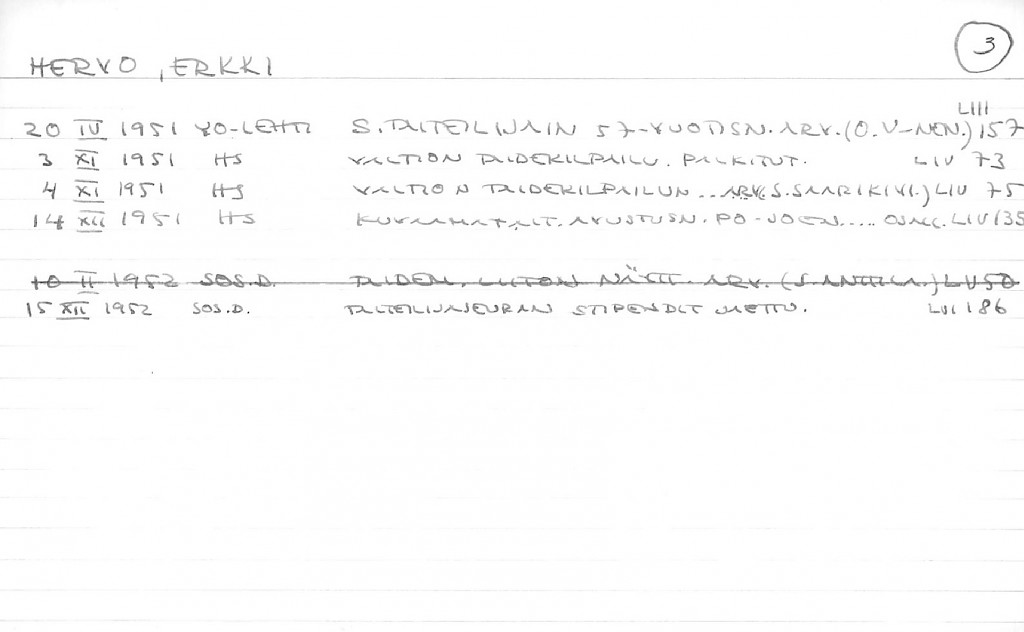 3
HERVO, ERKKI
LIII
20 IV 1951 YO-LEHTI S. TAITEILIJAIN 57-VUOTISN. ARV. (O. V-NEN.) 157
3 XI 1951 HS VALTION TAIDEKILPAILU. PALKITUT. LIV 73
4 XI 1951 HS VALTION TAIDEKILPAILUN... ARV. S. SAARIKIVI.) LIV 75
14 XII 1951 HS KUVAAMATAIT. AVUSTUSN. PO-JOEN..... LIV 135
10 II 1952 SOS.D. TAIDEN. LIITON NÄYTT. ARV. (S. ANTTILA.) LV 50
15 XII 1952 SOS.D. TAITEILIJASEURAN STIPENDIT JAETTU. LVI 186